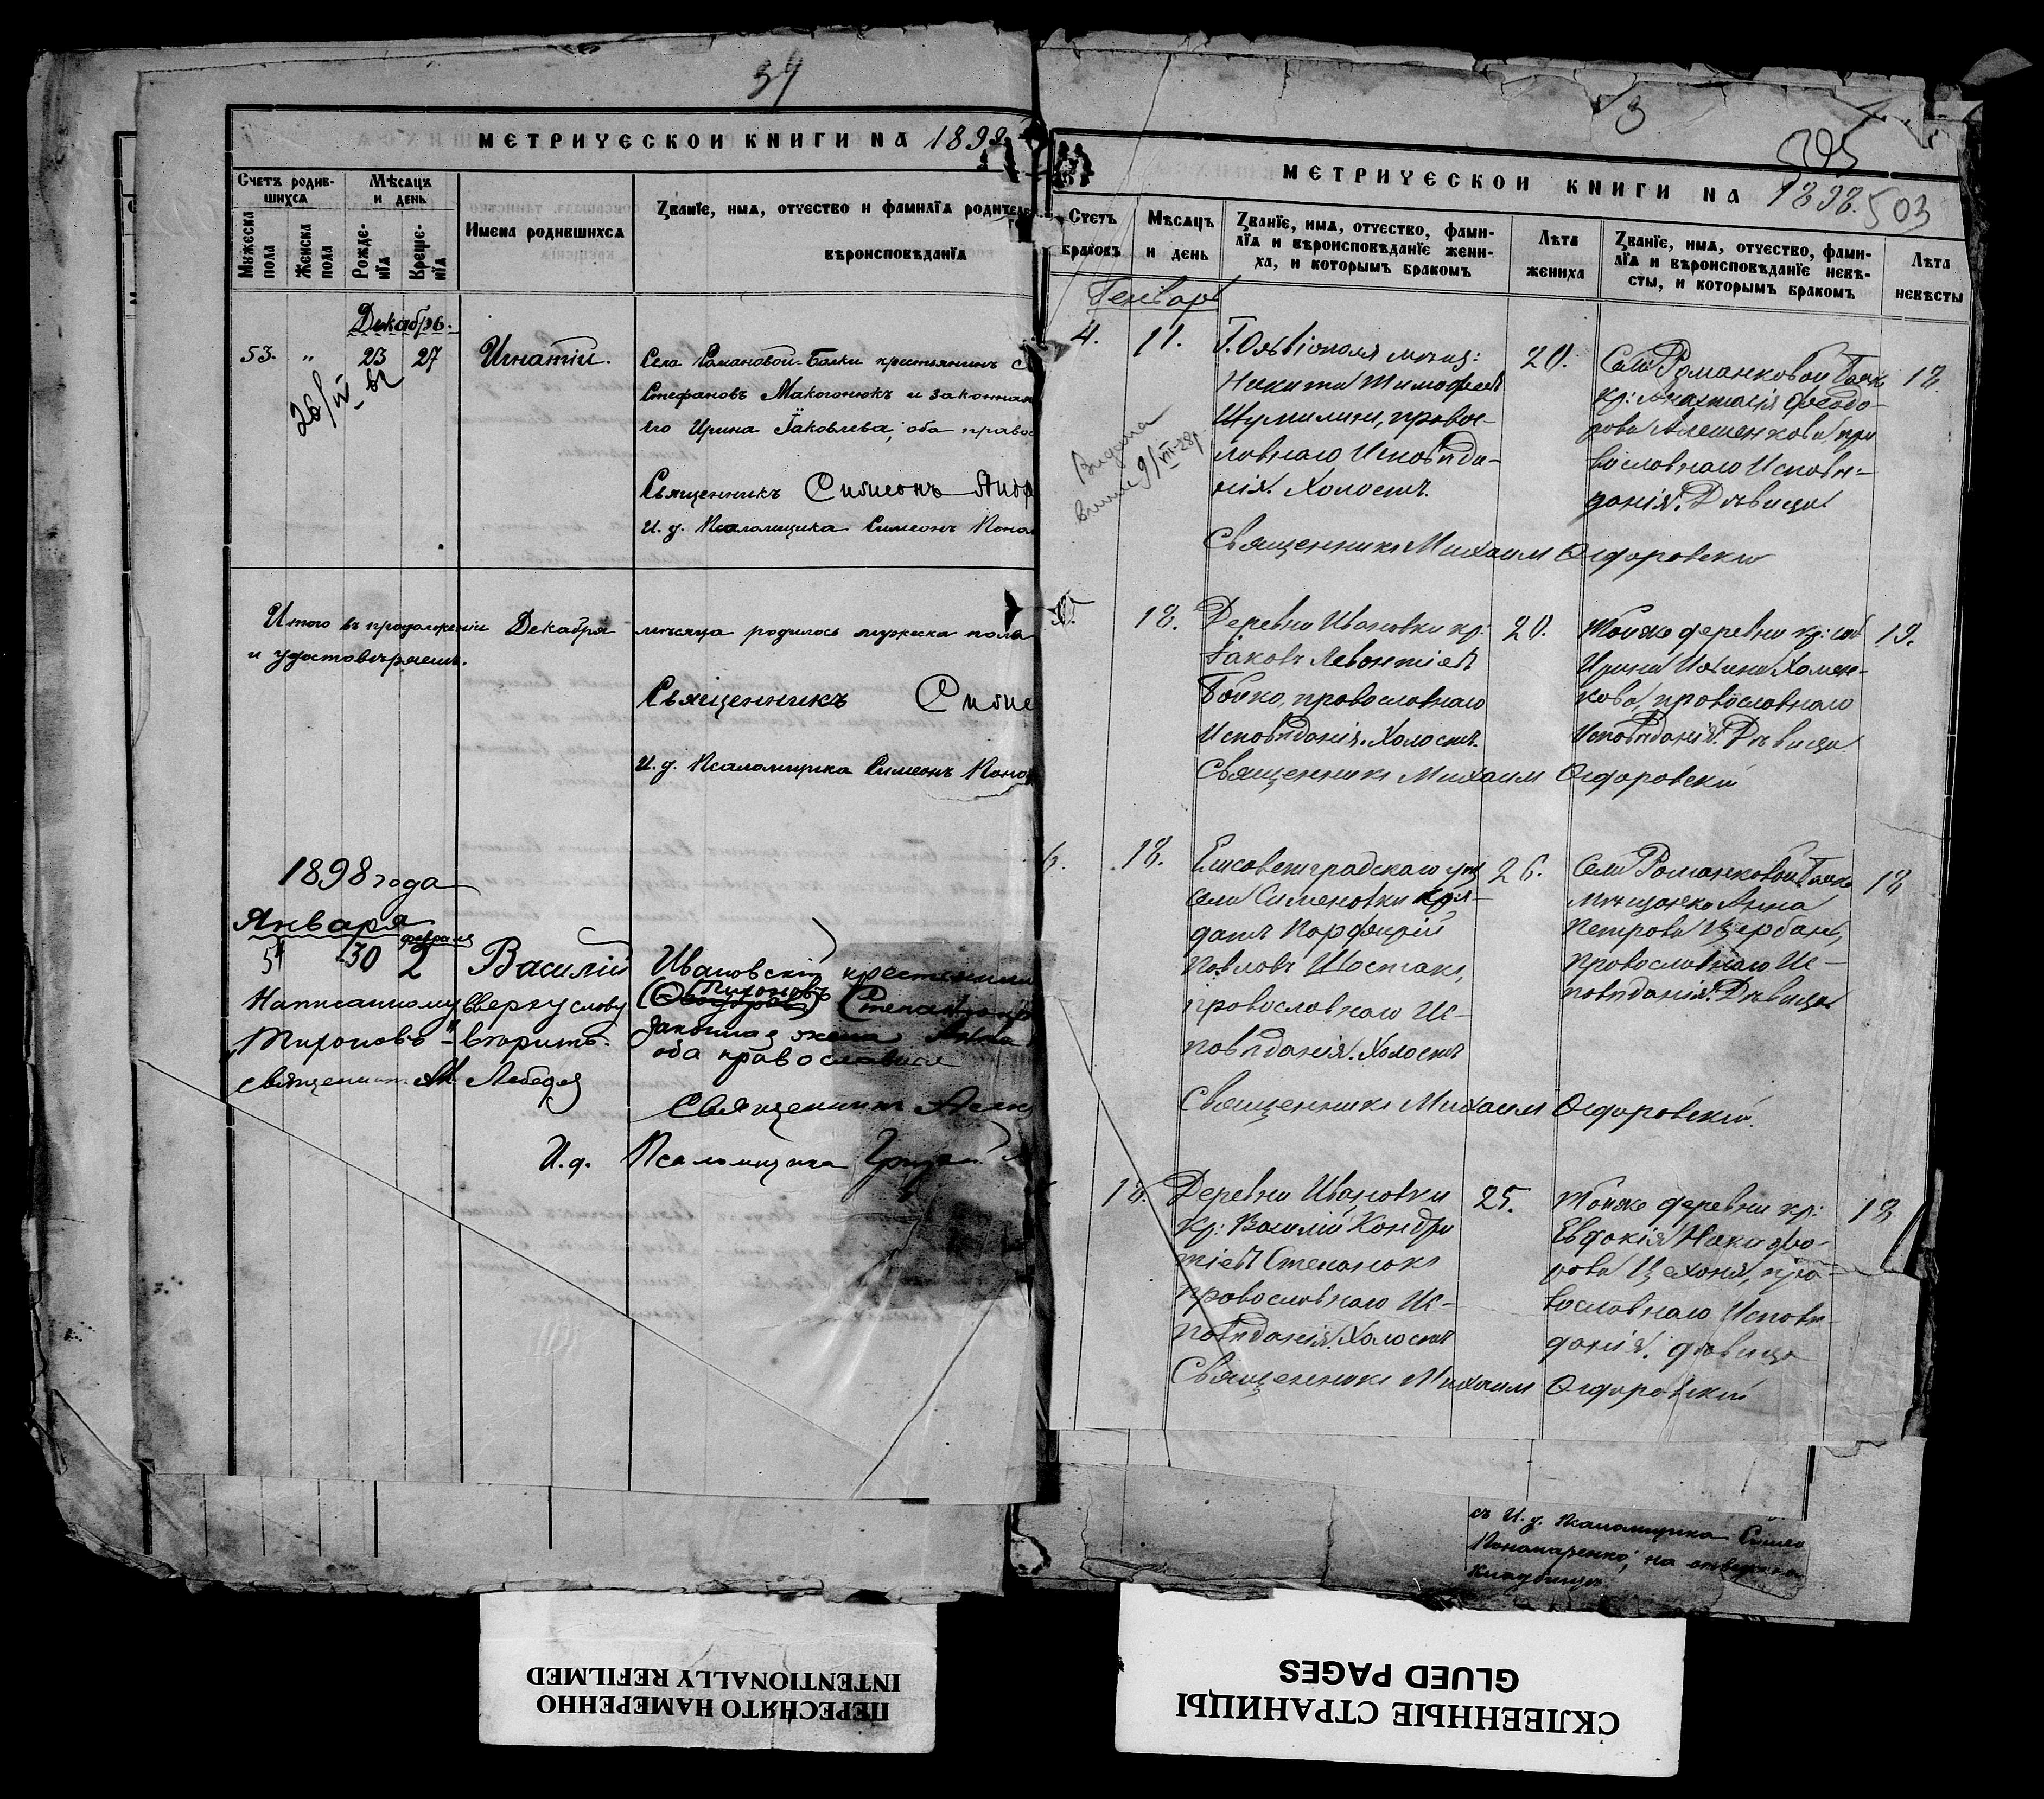 39
МЕТРИЧЕСКОИ КНИГИ НА 1898
Счетъ родив-
шихся
Мѣсяцъ
и день
Мужеска
пола
Женска
пола
Рожде-
нїя
Креще-
нїя
Имена родившихся
Званїе, имя, отчество и фамилїя родителе
вѣроисповѣданїя
Декабрь.
53. " 23 27 Игнатій. Села Романовой-Балки крестьянинъ
26/IV
Стефановъ Макогонюкъ и законная
его Ирина Іаковлева; оба правос
Священникъ Симеонъ
И. д. Псаломщика Симеонъ Поно
Итого въ продолженіи Декабря мѣсяца родилось мужеска пола
и удостовѣряемъ.
Священникъ Симе
И. д. Псаломщика Симеонъ Поно
1898 года
Января
февраля
54 30 2 Василій Ивановскій крестьянинъ
Тихоновъ
Написанному вверху слову Степанюкъ
„Тихоновъ" – вѣрить. законная жена Анна
оба православные
священник Ал Лебедев
Священникъ Алек
И. д. Псаломщика
3
505
503
МЕТРИЧЕСКОИ КНИГИ НА 1898.
Счетъ
браковъ
Мѣсяцъ
и день
Званїе, имя, отчество, фами-
лїя и вѣроисповѣданїе жени-
ха, и которымъ бракомъ
Лѣта
жениха
Званїе, имя, отчество, фами-
лїя и вѣроисповѣданїе невѣ-
сты, и которымъ бракомъ
Лѣта
невѣсты
Генварь
4. 11. Г. Ольвіополя мѣщ:
Никита Тимофеевъ
Шумилинъ, правос-
лавнаго Исповѣда-
нія. Холостъ.
20.
Села Романковой Балк
кр: Анастасія Феодо-
рова Алешенкова, пра
вославнаго Исповѣ-
данія. Дѣвица
18.
Выдана
9/VII-28г.
Священникъ Михаилъ Сидоровскій
5. 18. Деревни Ивановки кр:
Іаковъ Левонтіевъ
Бойко, православнаго
Исповѣданія. Холостъ.
20.
Тойже деревни кр:
Ирина Хомен-
кова, православнаго
Исповѣданія. Дѣвица
19.
Священникъ Михаилъ Сидоровскій
6. 18. Елисаветградскаго уѣз
села Сименовки Сол-
датъ Порфирій
Павловъ Шостакъ,
православнаго Ис-
повѣданія. Холостъ
26.
Села Романковой Балки
мѣщанка Анна
Петрова Щербань,
православнаго Ис-
повѣданія. Дѣвица
18
Священникъ Михаилъ Сидоровскій.
18. Деревни Ивановки
кр: Василій Кондра
тіевъ Степанюкъ
православнаго Ис-
повѣданія. Холостъ
25.
Тойже деревни кр:
Евдокія Никифо-
рова Цехоня, пра-
вославнаго Исповѣ
данія. дѣвица
18.
Священникъ Михаилъ Сидоровскій
съ И. д. Псаломщика Симео
Понамаренко, на
Кладбищѣ.
ПЕРЕСНЯТО НАМЕРЕННО
INTENTIONALLY REFILMED
СКЛЕЕННЫЕ СТРАНИЦЫ
GLUED PAGES